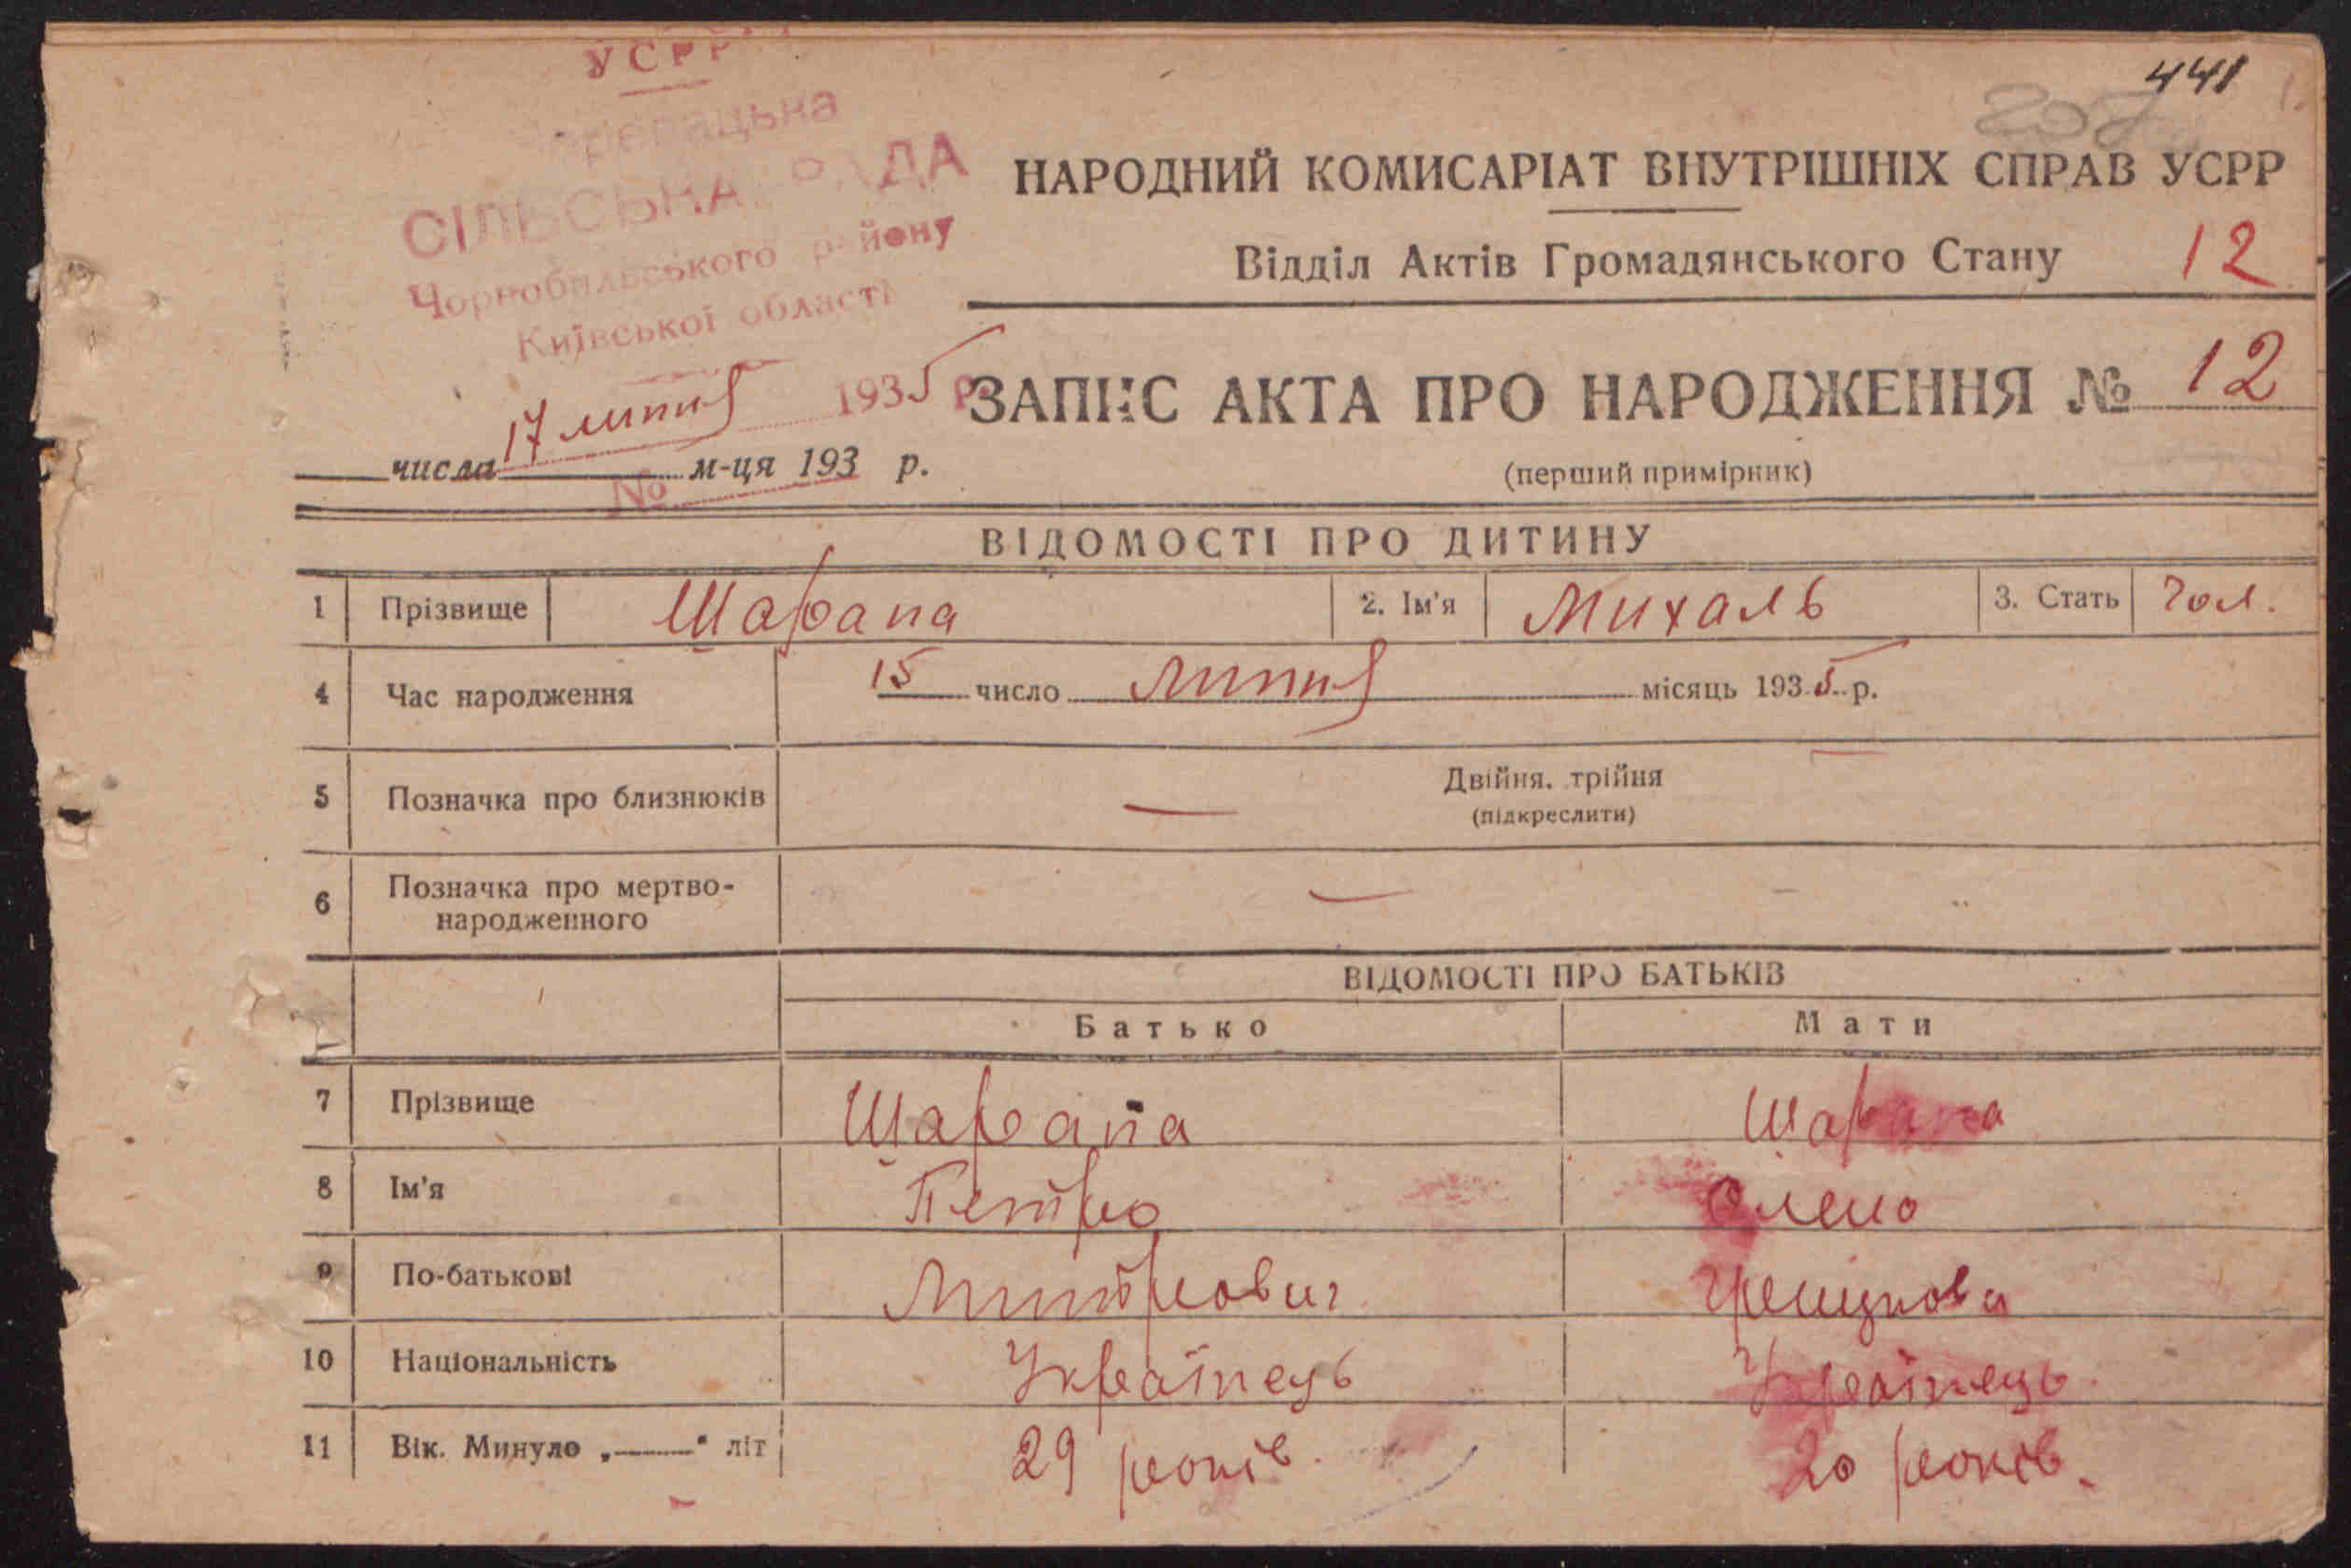 УСРР
441
СІЛЬСЬКА РАДА
Чорнобильського району
Київської області
17 липня 1935 р.
№
НАРОДНИЙ КОМИСАРІАТ ВНУТРІШНІХ СПРАВ УСРР
Відділ Актів Громадянського Стану 12
ЗАПИС АКТА ПРО НАРОДЖЕННЯ № 12
числа м-ця 193 р.
(перший примірник)
ВІДОМОСТІ ПРО ДИТИНУ
1 Прізвище Шарапа 2. Ім'я Михаль 3. Стать Чол.
4 Час народження 15 число липня місяць 1935 р.
5 Позначка про близнюків — Двійня. трійня
(підкреслити)
6 Позначка про мертво-
народженного —
ВІДОМОСТІ ПРО БАТЬКІВ
Батько Мати
7 Прізвище Шарапа Шарапа
8 Ім'я Петро Олено
9 По-батькові Митрович
10 Національність Українець Українець
11 Вік. Минуло „——" літ 29 років. 20 років.